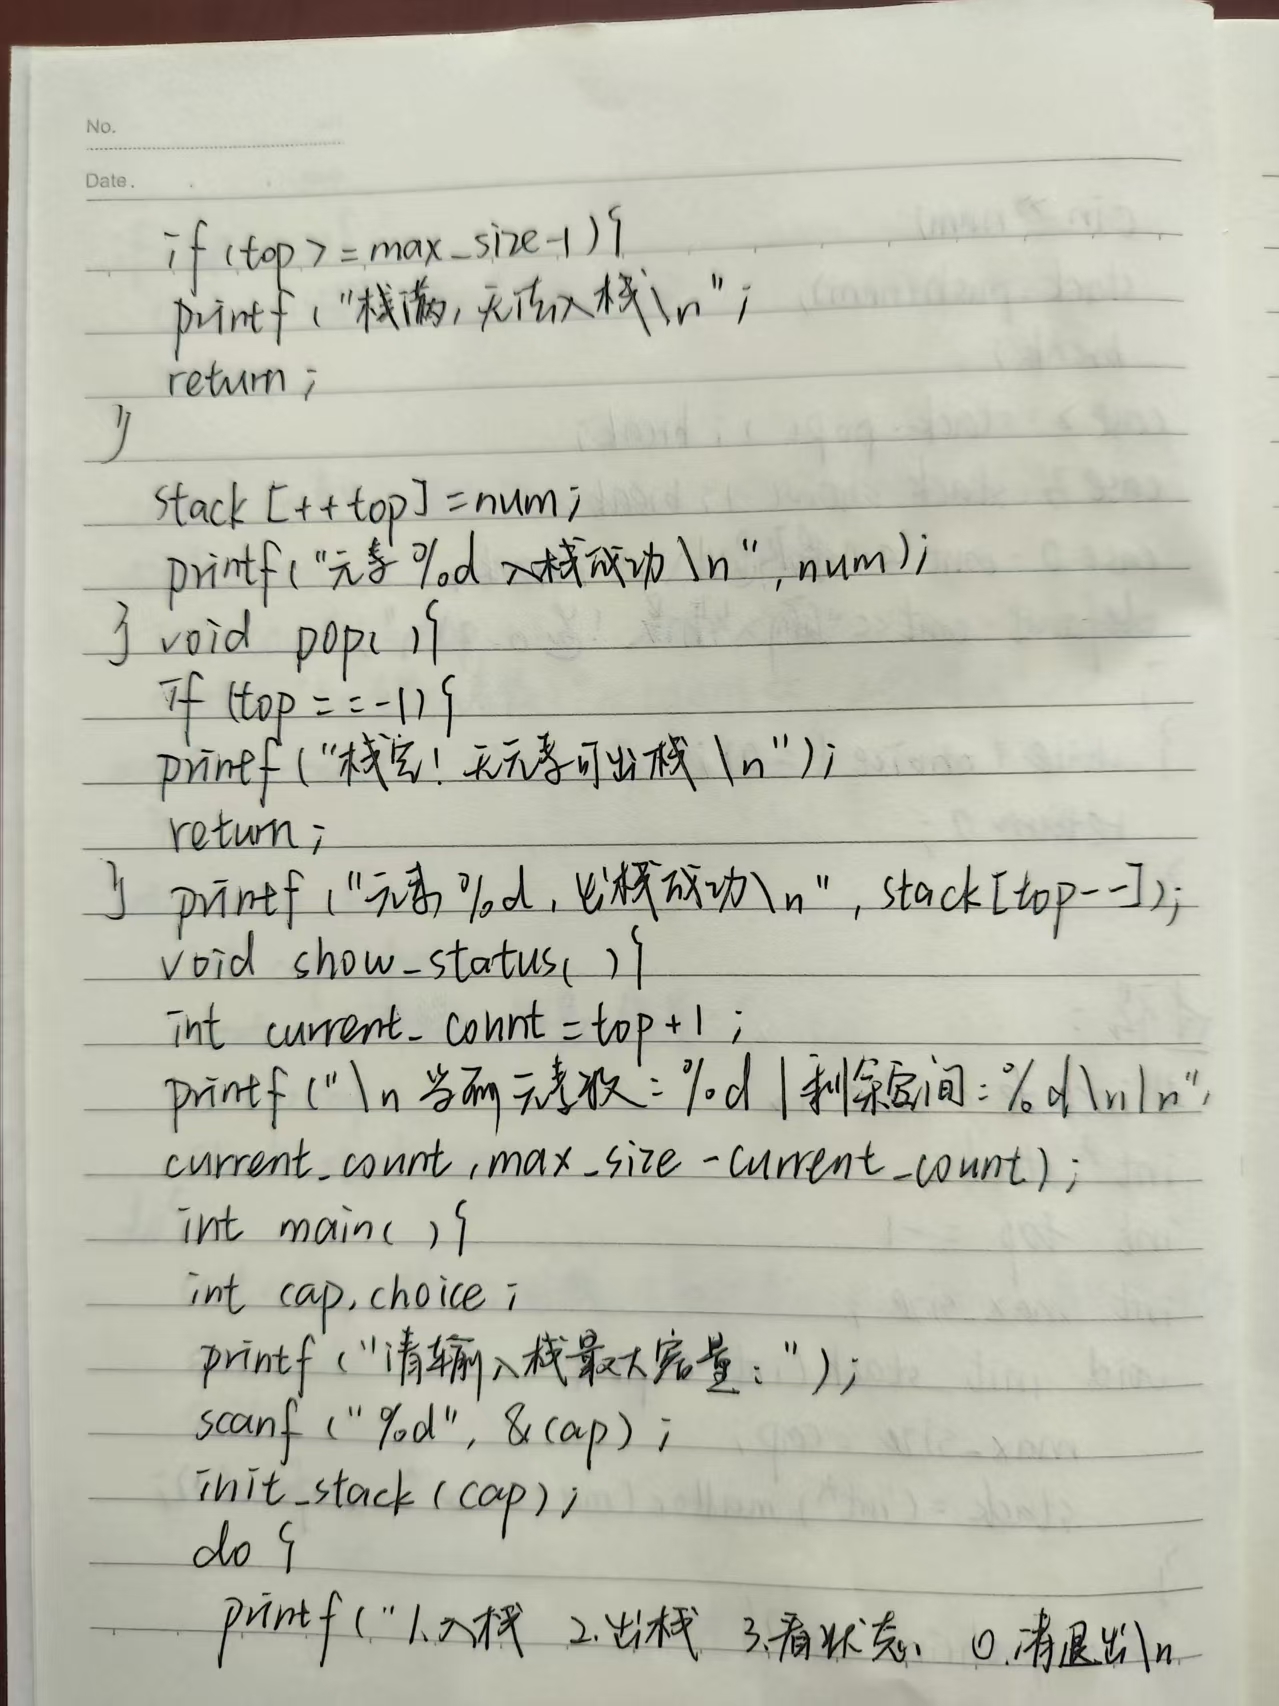 No.
Date.
if (top >= max_size-1){
printf ("栈满,无法入栈\n";
return;
}
stack [++top] = num;
printf("元素%d入栈成功\n", num);
} void pop( ){
if (top == -1){
printf ("栈空! 无元素可出栈\n");
return;
} printf ("元素%d, 出栈成功\n", stack[top--]);
void show_status( ){
int current_count = top+1;
printf ("\n当前元素数:%d|剩余空间:%d\n\n",
current_count, max_size - current_count);
int main( ){
int cap, choice;
printf ("请输入栈最大容量:");
scanf ("%d", &cap);
init_stack (cap);
do {
printf ("1.入栈 2.出栈 3.看状态、 0.请退出\n